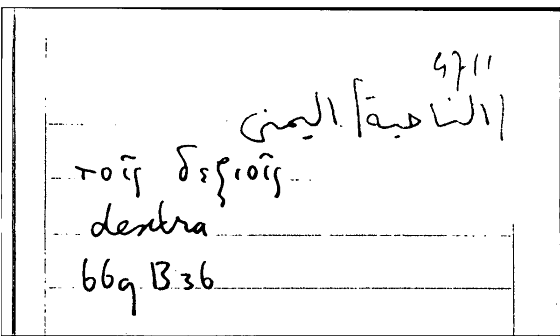 4711
[الناحية] اليمنى
τοῖς δεξιοῖς
dextra
669 B 36